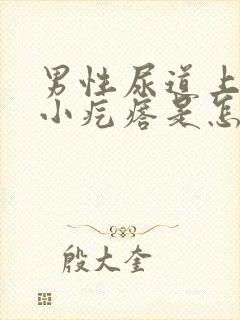 男性尿道上
小疙瘩是怎
殷大奎